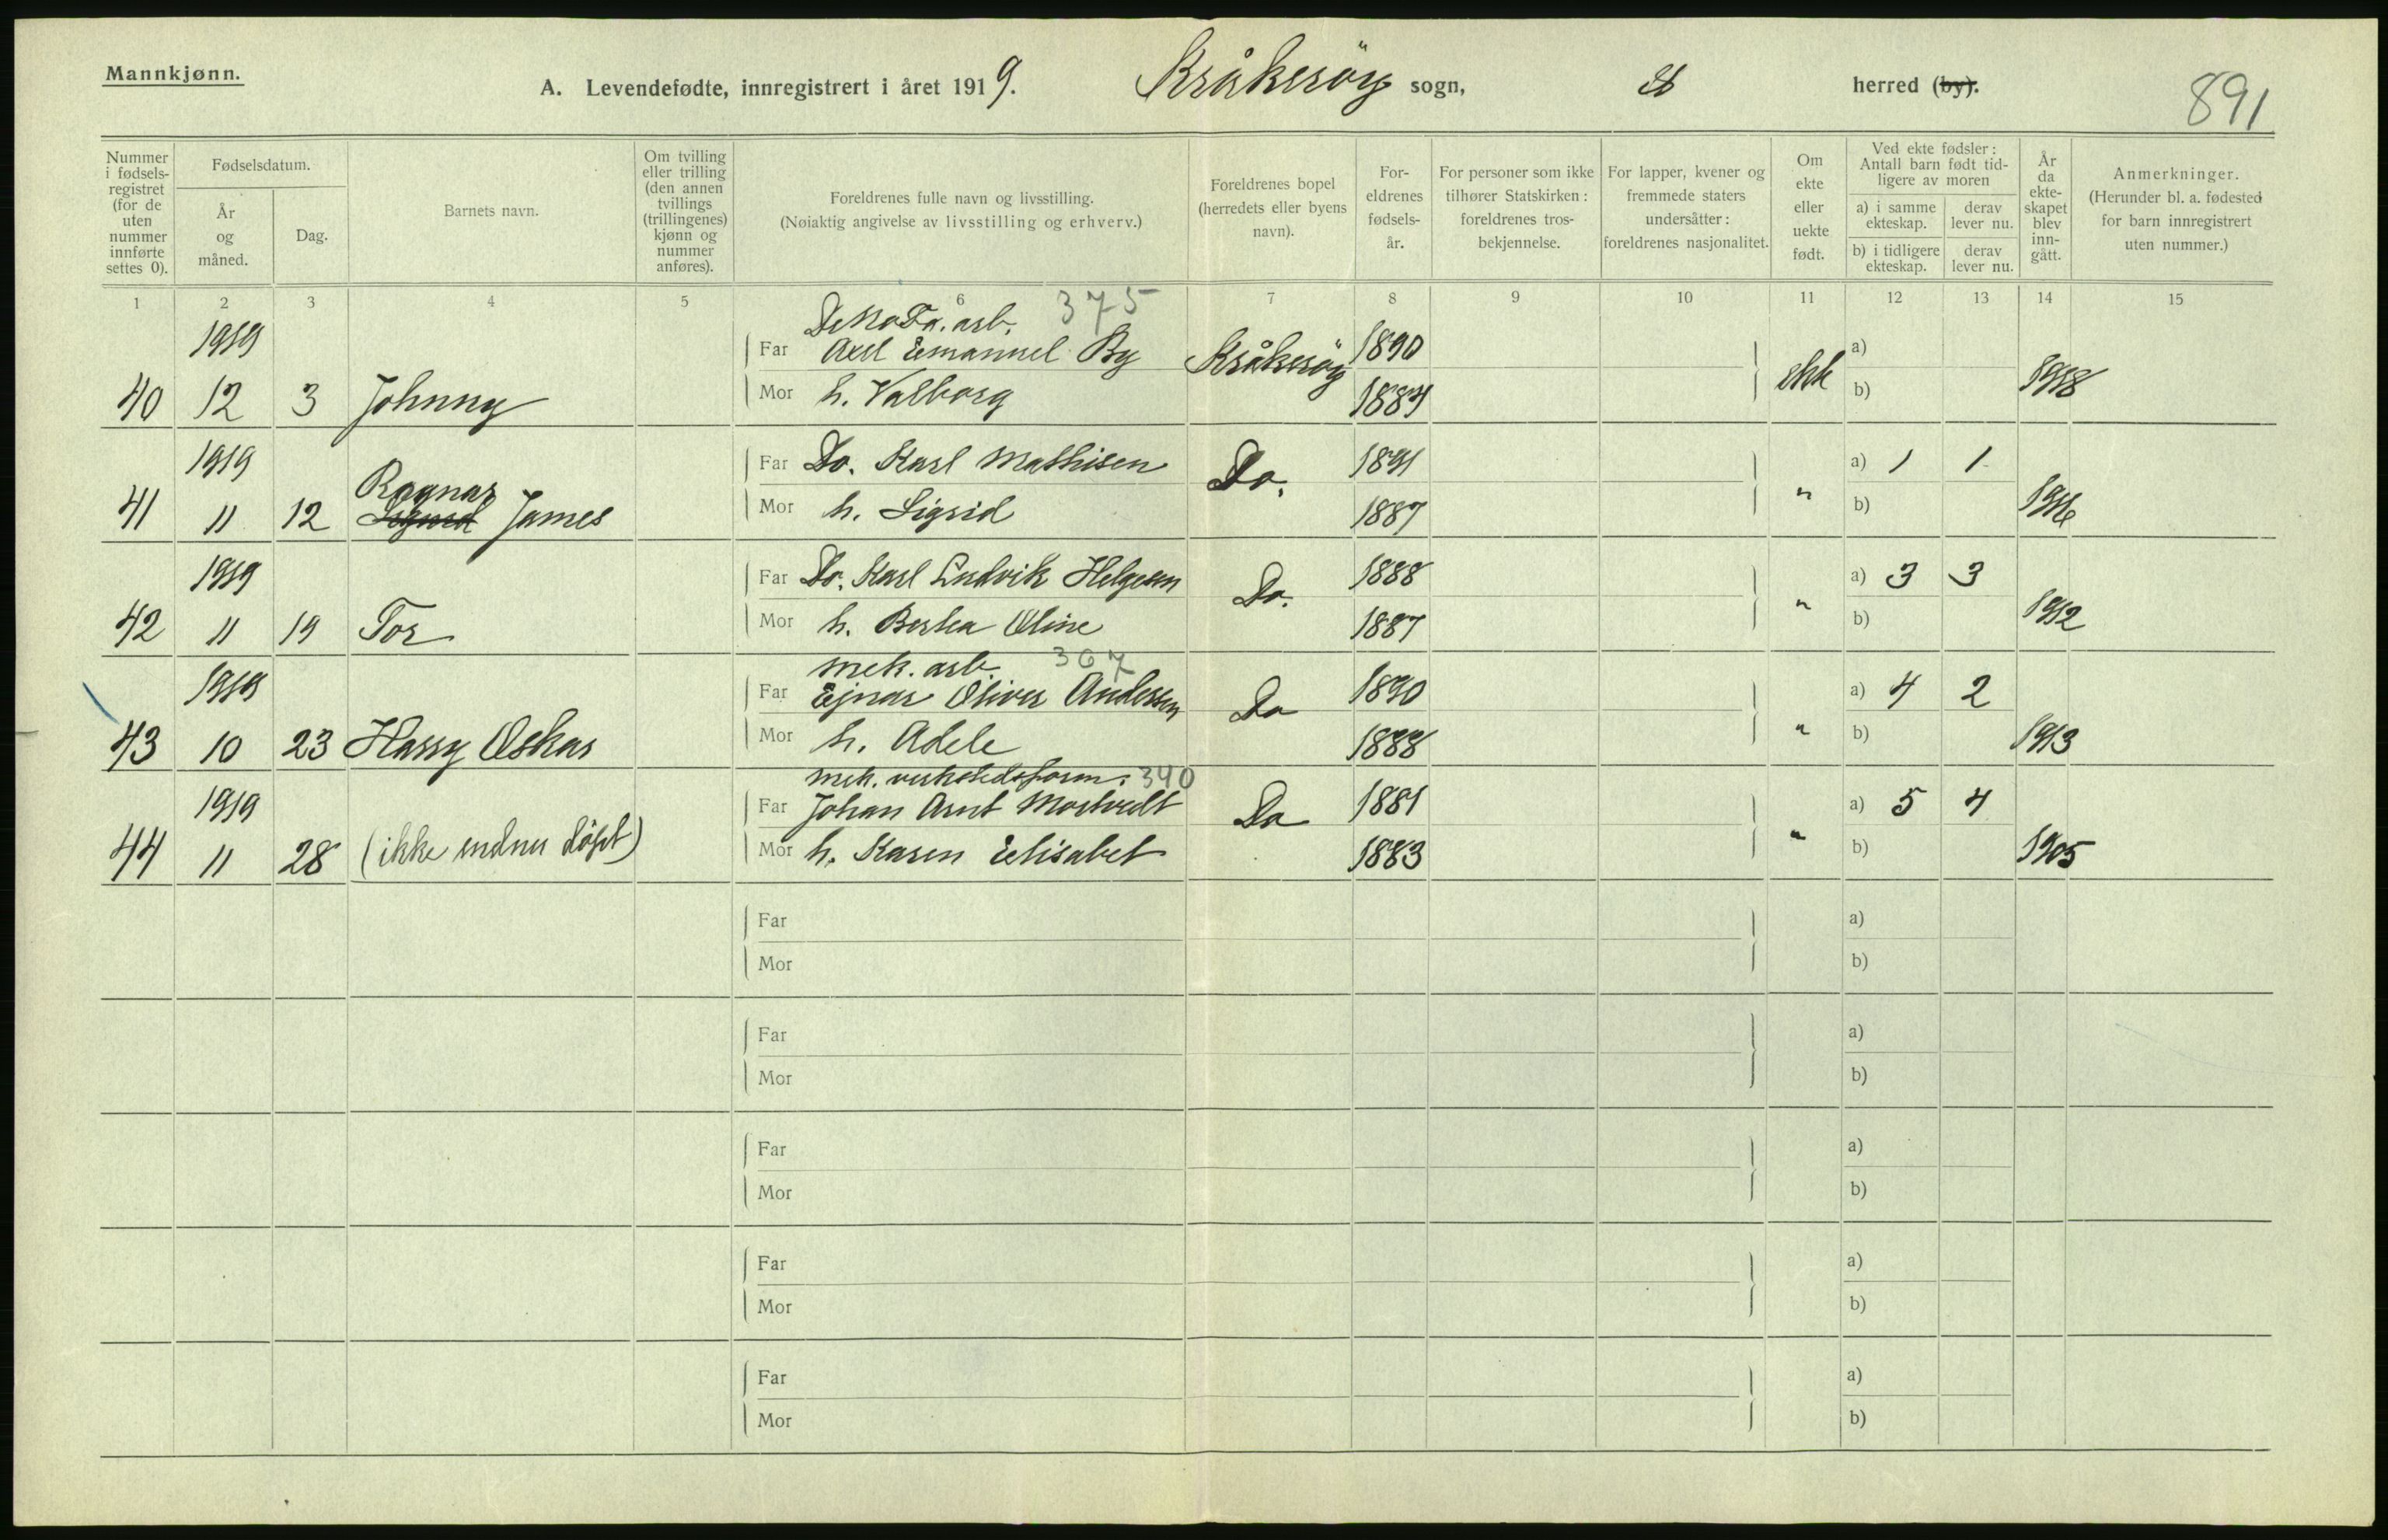 Mannkjønn.
A. Levendefødte, innregistrert i året 1919. Kråkerøy sogn, herred (by).
891
Nummer i fødselsregistret (for de uten nummer innførte settes 0).
Fødselsdatum.
År og måned.
Dag.
Barnets navn.
Om tvilling eller trilling (den annen tvillings (trillingenes) kjønn og nummer anføres).
Foreldrenes fulle navn og livsstilling.
(Nøiaktig angivelse av livsstilling og erhverv.)
Foreldrenes bopel (herredets eller byens navn).
For-eldrenes fødsels-år.
For personer som ikke tilhører Statskirken: foreldrenes tros-bekjennelse.
For lapper, kvener og fremmede staters undersåtter: foreldrenes nasjonalitet.
Om ekte eller uekte født.
Ved ekte fødsler: Antall barn født tid-ligere av moren
a) i samme ekteskap. derav lever nu.
b) i tidligere ekteskap. derav lever nu.
År da ekte-skapet blev inn-gått.
Anmerkninger.
(Herunder bl. a. fødested for barn innregistrert uten nummer.)
1 2 3 4 5 6 7 8 9 10 11 12 13 14 15
arb. 375
1919 Far Axel Emanuel By Kråkerøy 1890 a)
40 12 3 Johnny Mor h. Valborg 1887 ekte b) 1918
1919 Far Do. Karl Mathisen Do. 1891 a) 1 1
Ragnar
41 11 12 Sigurd James Mor h. Sigrid 1887 " b) 1916
1919 Far Do. Karl Ludvik Helgesen Do. 1888 a) 3 3
42 11 19 Tor Mor h. Bertea Oline 1887 " b) 1912
mek. arb. 307
1919 Far Ejnar Oliver Andersen Do 1890 a) 4 2
43 10 23 Harry Oskar Mor h. Adele 1888 " b) 1913
mek. verkstedsform. 340
1919 Far Johan Arnt Mostvedt Do 1881 a) 5 4
44 11 28 (ikke endnu døpt) Mor h. Karen Elisabet 1883 " b) 1905
Far a)
Mor b)
Far a)
Mor b)
Far a)
Mor b)
Far a)
Mor b)
Far a)
Mor b)